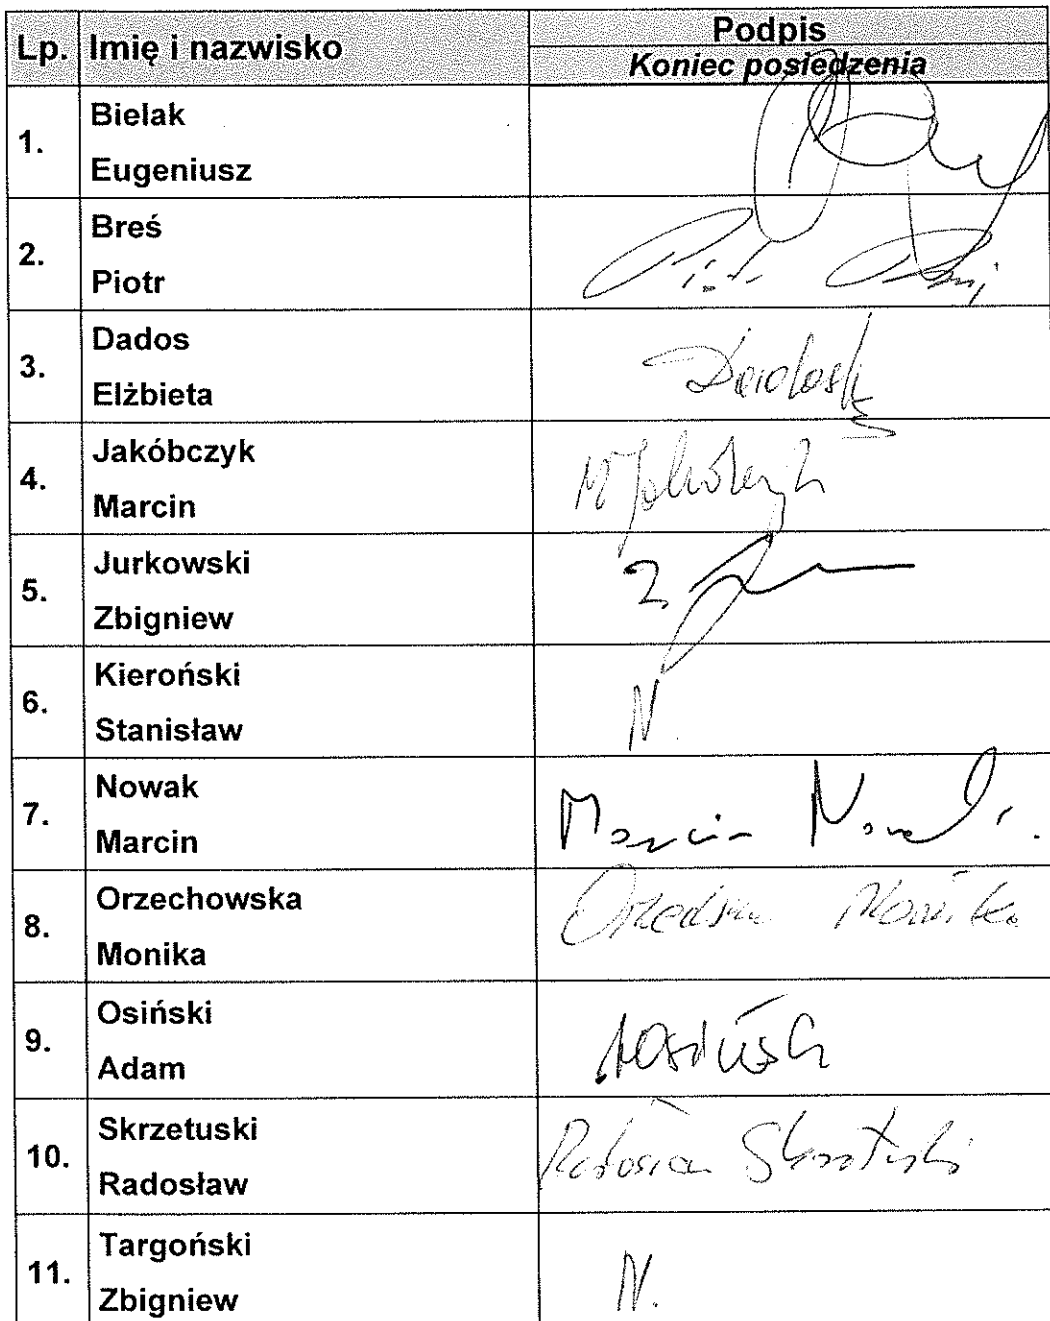 Lp. Imię i nazwisko Podpis
Koniec posiedzenia
1. Bielak
Eugeniusz
2. Breś
Piotr
3. Dados
Elżbieta
4. Jakóbczyk
Marcin
5. Jurkowski
Zbigniew
6. Kieroński
Stanisław
N.
7. Nowak
Marcin
Marcin Nowak
8. Orzechowska
Monika
Monika
9. Osiński
Adam
10. Skrzetuski
Radosław
Radosław Skrzetuski
11. Targoński
Zbigniew
N.